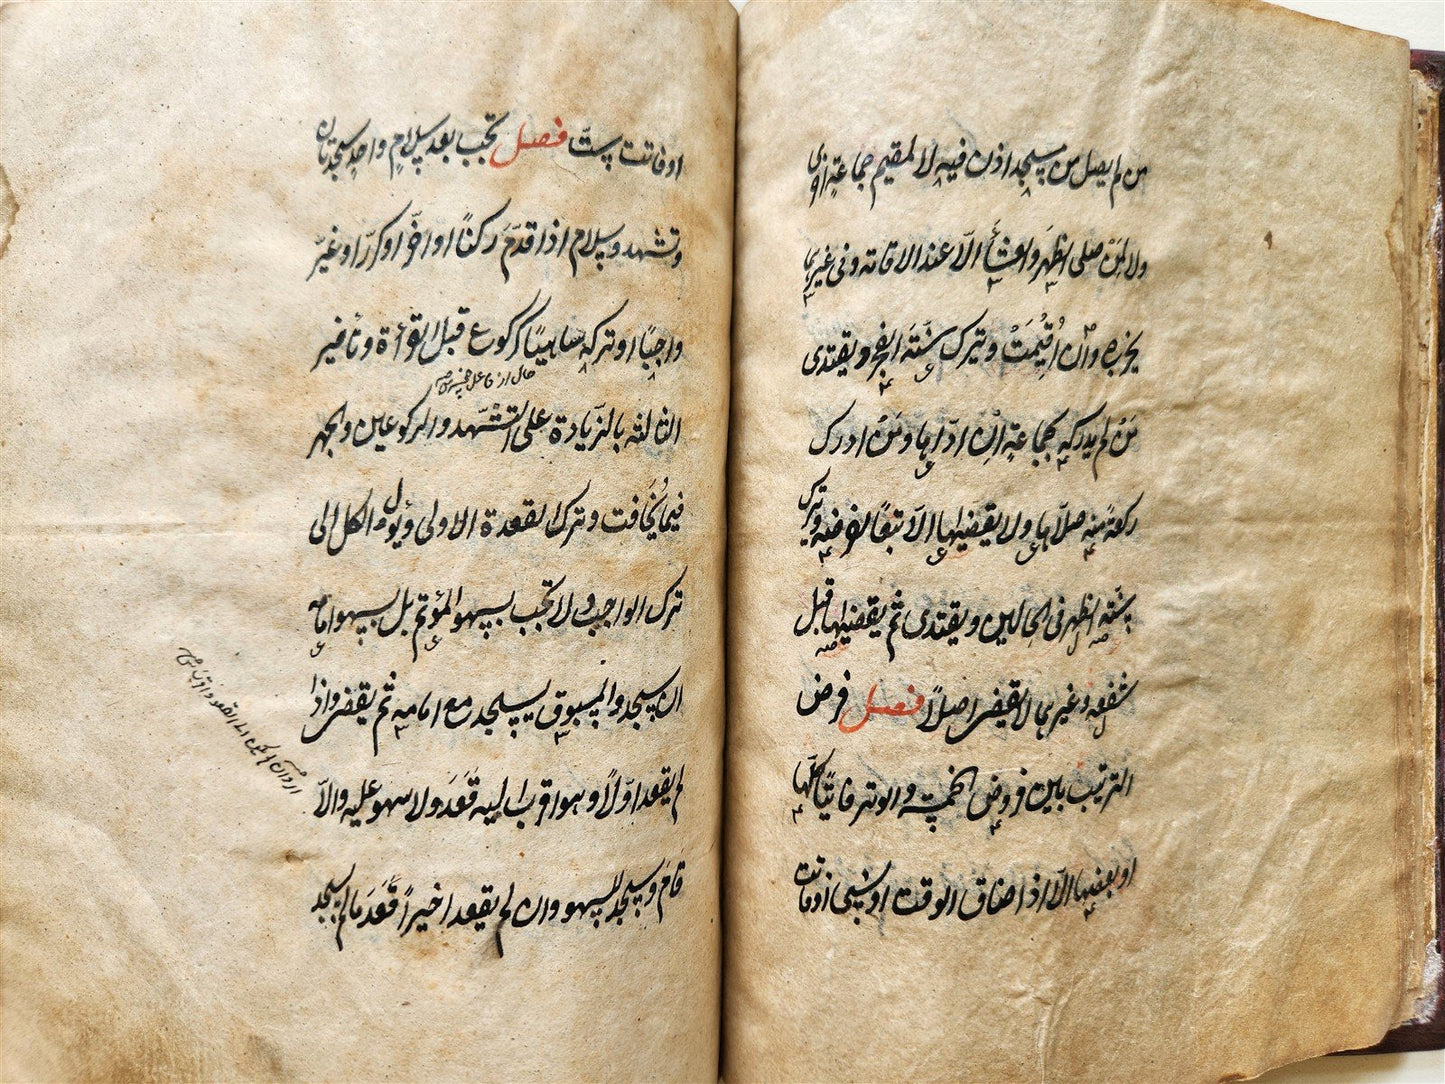 من لم يصل من مسجد اذن فيه لا لمقيم جماعة اخرى
ولا لمن صلى الظهر والعشاء الّا عند الاقامة وفى غيرهما
يخرج وان اُقيمَتْ ويترك سنّة الفجر ويقتدى
مَنْ لم يدركه بجماعة اِنْ ادّاها ومَنْ ادرك
ركعة منه صلّاها ولا يقضيها الّا تبعًا لفرضه ويترك
سنّة الظهر فى الحالين ويقتدى ثم يقضيها قبل
شفعه وغيرهما لا يقضى اصلاً فصل فرض
الترتيب بين فروض الخمسة والوتر فائتًا كلّها
او بعضها الّا اذا ضاق الوقت او نسى او فاتت
او فاتت ستّ فصل تجب بعد سلام واحد سجدتان
وتشهد وسلام اذا قدّم ركنًا او اخّر او كرّر او غيّر
واجبًا او تركه ساهيًا كركوع قبل القرأة وتأخير
الثالثة بالزّيادة على التشهّد والركوعين والجهر
فيما يُخَافت وترك القعدة الاولى ويؤول الكل الى
ترك الواجب ولا تجب بسهو المؤتم بل بسهو امامه
ان سجد والمسبوق يسجد مع امامه ثم يقضى واذا
لم يقعد اوّلاً وهو اقرب اليه قَعَد ولا سهو عليه والّا
قام وسجد للسهو وان لم يقعد اخيراً قَعَدَ ما لم يسجد